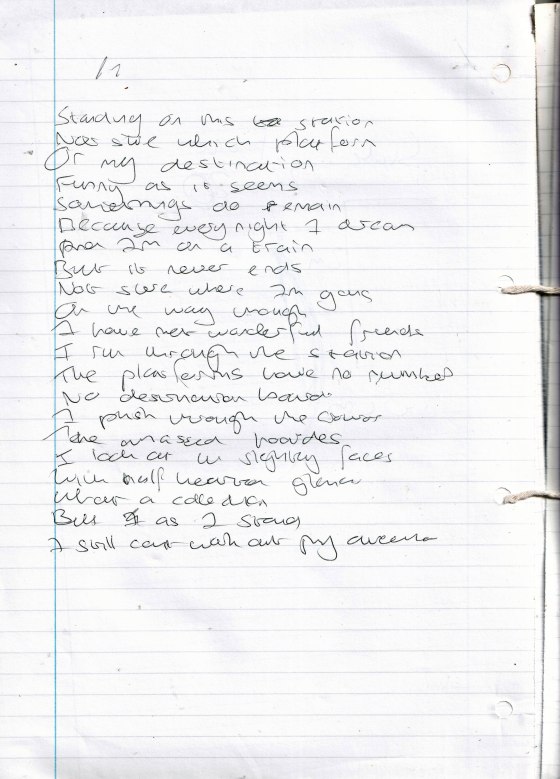 /1
Standing on this station
Not sure which platform
Or my destination
Funny as it seems
Somethings do remain
Because every night I dream
And Im on a train
But it never ends
Not sure where Im going
On the way though
I have met wonderful friends
I run through the station
The platforms have no numbers
No destination boards
I push through the crowd
The massed hoardes
I look at in sighing faces
With half glance
What a collection
But as I stand
I still cant work out my dream